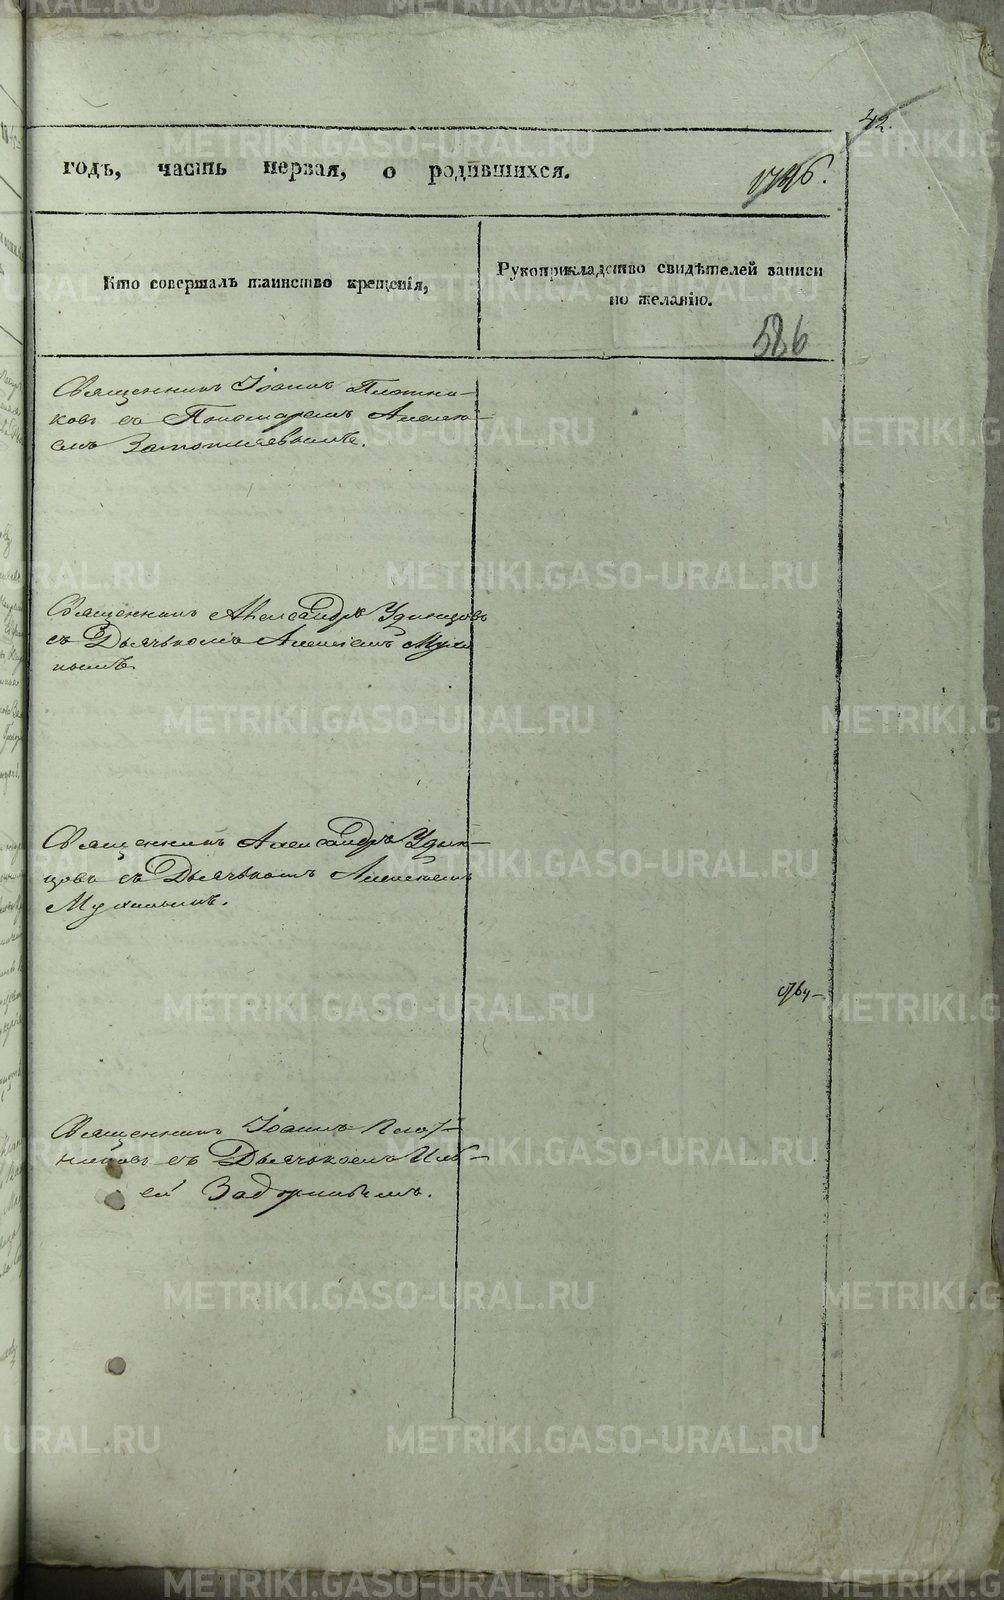 42.
годъ, часть первая, о родившихся.
Кто совершалъ таинство крещенія,
Рукоприкладство свидѣтелей записи
по желанію.
586
Священникъ Іоаннъ Плотни-
ковъ съ Пономаремъ Алексѣ-
емъ
Священникъ Александръ Удинцовъ
съ Дьячькомъ Алексѣемъ Мухи
нымъ.
Священникъ Александръ Удин-
цовъ съ Дьячькомъ Алексѣемъ
Мухинымъ.
Священникъ Іоаннъ Плот-
никовъ съ Дьячькомъ Иль-
ей Задоринымъ.
METRIKI.GASO-URAL.RU